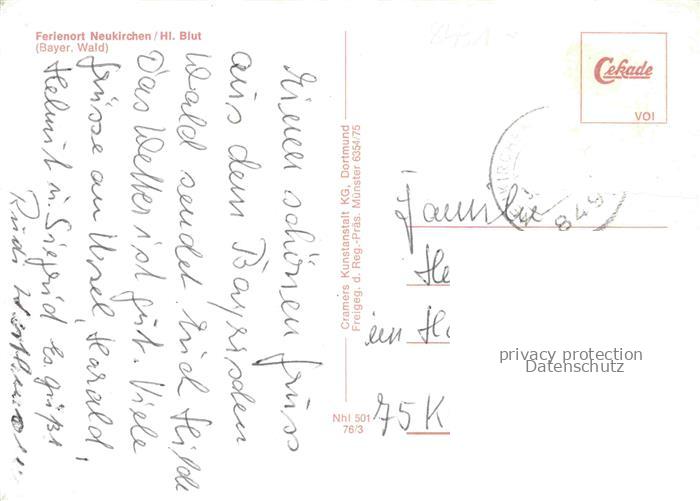 Ferienort Neukirchen / Hl. Blut
(Bayer. Wald)
Einen schönen Gruss
aus dem Bayrischen
Wald sendet Euch Hilde
Das Wetter ist gut. Viele
Grüsse an Ursel, Harald,
Helmut u. Siegrid es grüßt
Rudi
Cramers Kunstanstalt KG, Dortmund
Freigeg. d. Reg.-Präs. Münster 6354/75
Nhl 501
76/3
Cekade
VOI
KIRCHEN
8498
Familie
He
in H
75 K
privacy protection
Datenschutz